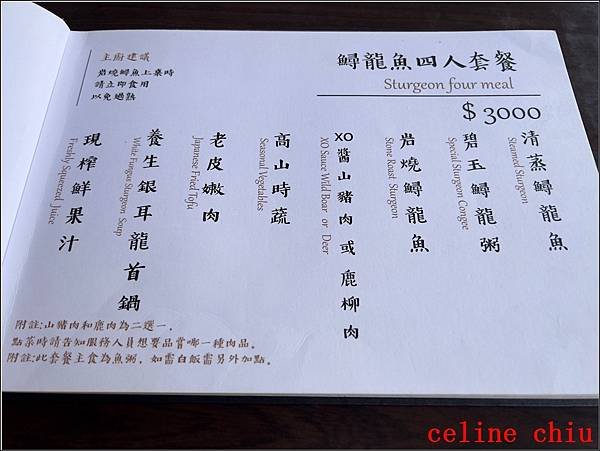 鱘龍魚四人套餐
Sturgeon four meal
$ 3000
主廚建議
岩燒鱘魚上桌時
請立即食用
以免過熟
清蒸鱘龍魚
Steamed Sturgeon
碧玉鱘龍粥
Special Sturgeon Congee
岩燒鱘龍魚
Stone Roast Sturgeon
XO醬山豬肉或鹿柳肉
XO Sauce Wild Boar or Deer
高山時蔬
Seasonal Vegetables
老皮嫩肉
Japanese Fried Tofu
養生銀耳龍首鍋
White Fungus Sturgeon Soup
現榨鮮果汁
Freshly Squeezed Juice
附註:山豬肉和鹿肉為二選一，
點菜時請告知服務人員想要品嘗哪一種肉品。
附註:此套餐主食為魚粥，如需白飯需另外加點。
celine chiu